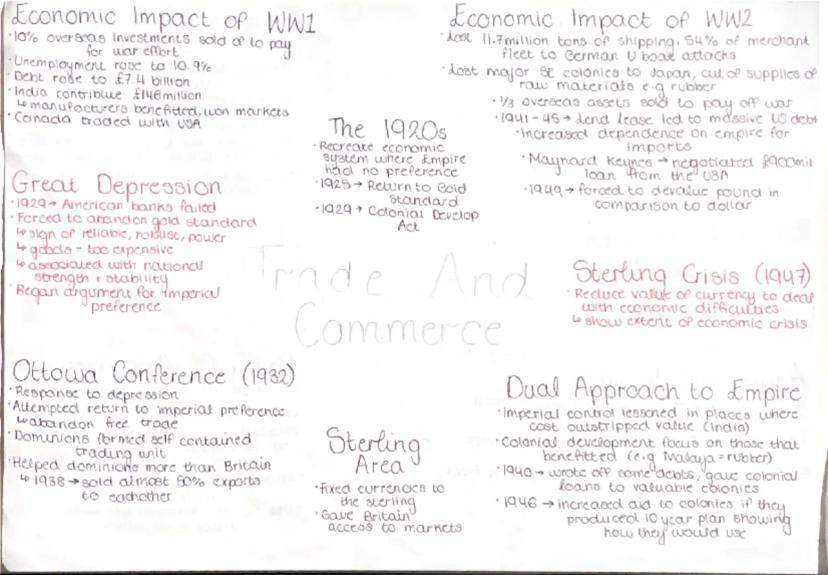 Economic Impact of WW1
·10% overseas investments sold of to pay
for war effort
·Unemployment rose to 10.9%
·Debt rose to £7.4 billion
·India contribute £146million
↳manufacturers benefitted, won markets
·Canada traded with USA
Great Depression
·1929→American banks failed
·Forced to abandon gold standard
↳sign of reliable, robust, power
↳goods = too expensive
↳associated with national
strength + stability
·Began argument for imperial
preference
Ottowa Conference (1932)
·Response to depression
·Attempted return to imperial preference
↳abandon free trade
·Dominions formed self contained
trading unit
·Helped dominions more than Britain
↳1938→sold almost 80% exports
to eachother
The 1920s
·Recreate economic
system where Empire
had no preference
·1925→Return to Gold
Standard
·1929→Colonial Develop
Act
Trade And
Commerce
Sterling
Area
·Fixed currencies to
the sterling
·Gave Britain
access to markets
Economic Impact of WW2
·Lost 11.7million tons of shipping, 54% of merchant
fleet to German U boat attacks
·Lost major SE colonies to Japan, cut of supplies of
raw materials e.g rubber
·⅓ overseas assets sold to pay off war
·1941-45→Lend lease led to massive US debt
·Increased dependence on empire for
imports
·Maynard Keynes→negotiated £900mil
loan from the USA
·1949→forced to devalue pound in
comparison to dollar
Sterling Crisis (1947)
·Reduce value of currency to deal
with economic difficulties
↳show extent of economic crisis
Dual Approach to Empire
·Imperial control lessoned in places where
cost outstripped value (India)
·Colonial development focus on those that
benefitted (e.g Malaya=rubber)
·1940→wrote off some debts, gave colonial
loans to valuable colonies
·1946→increased aid to colonies if they
produced 10 year plan showing
how they would use